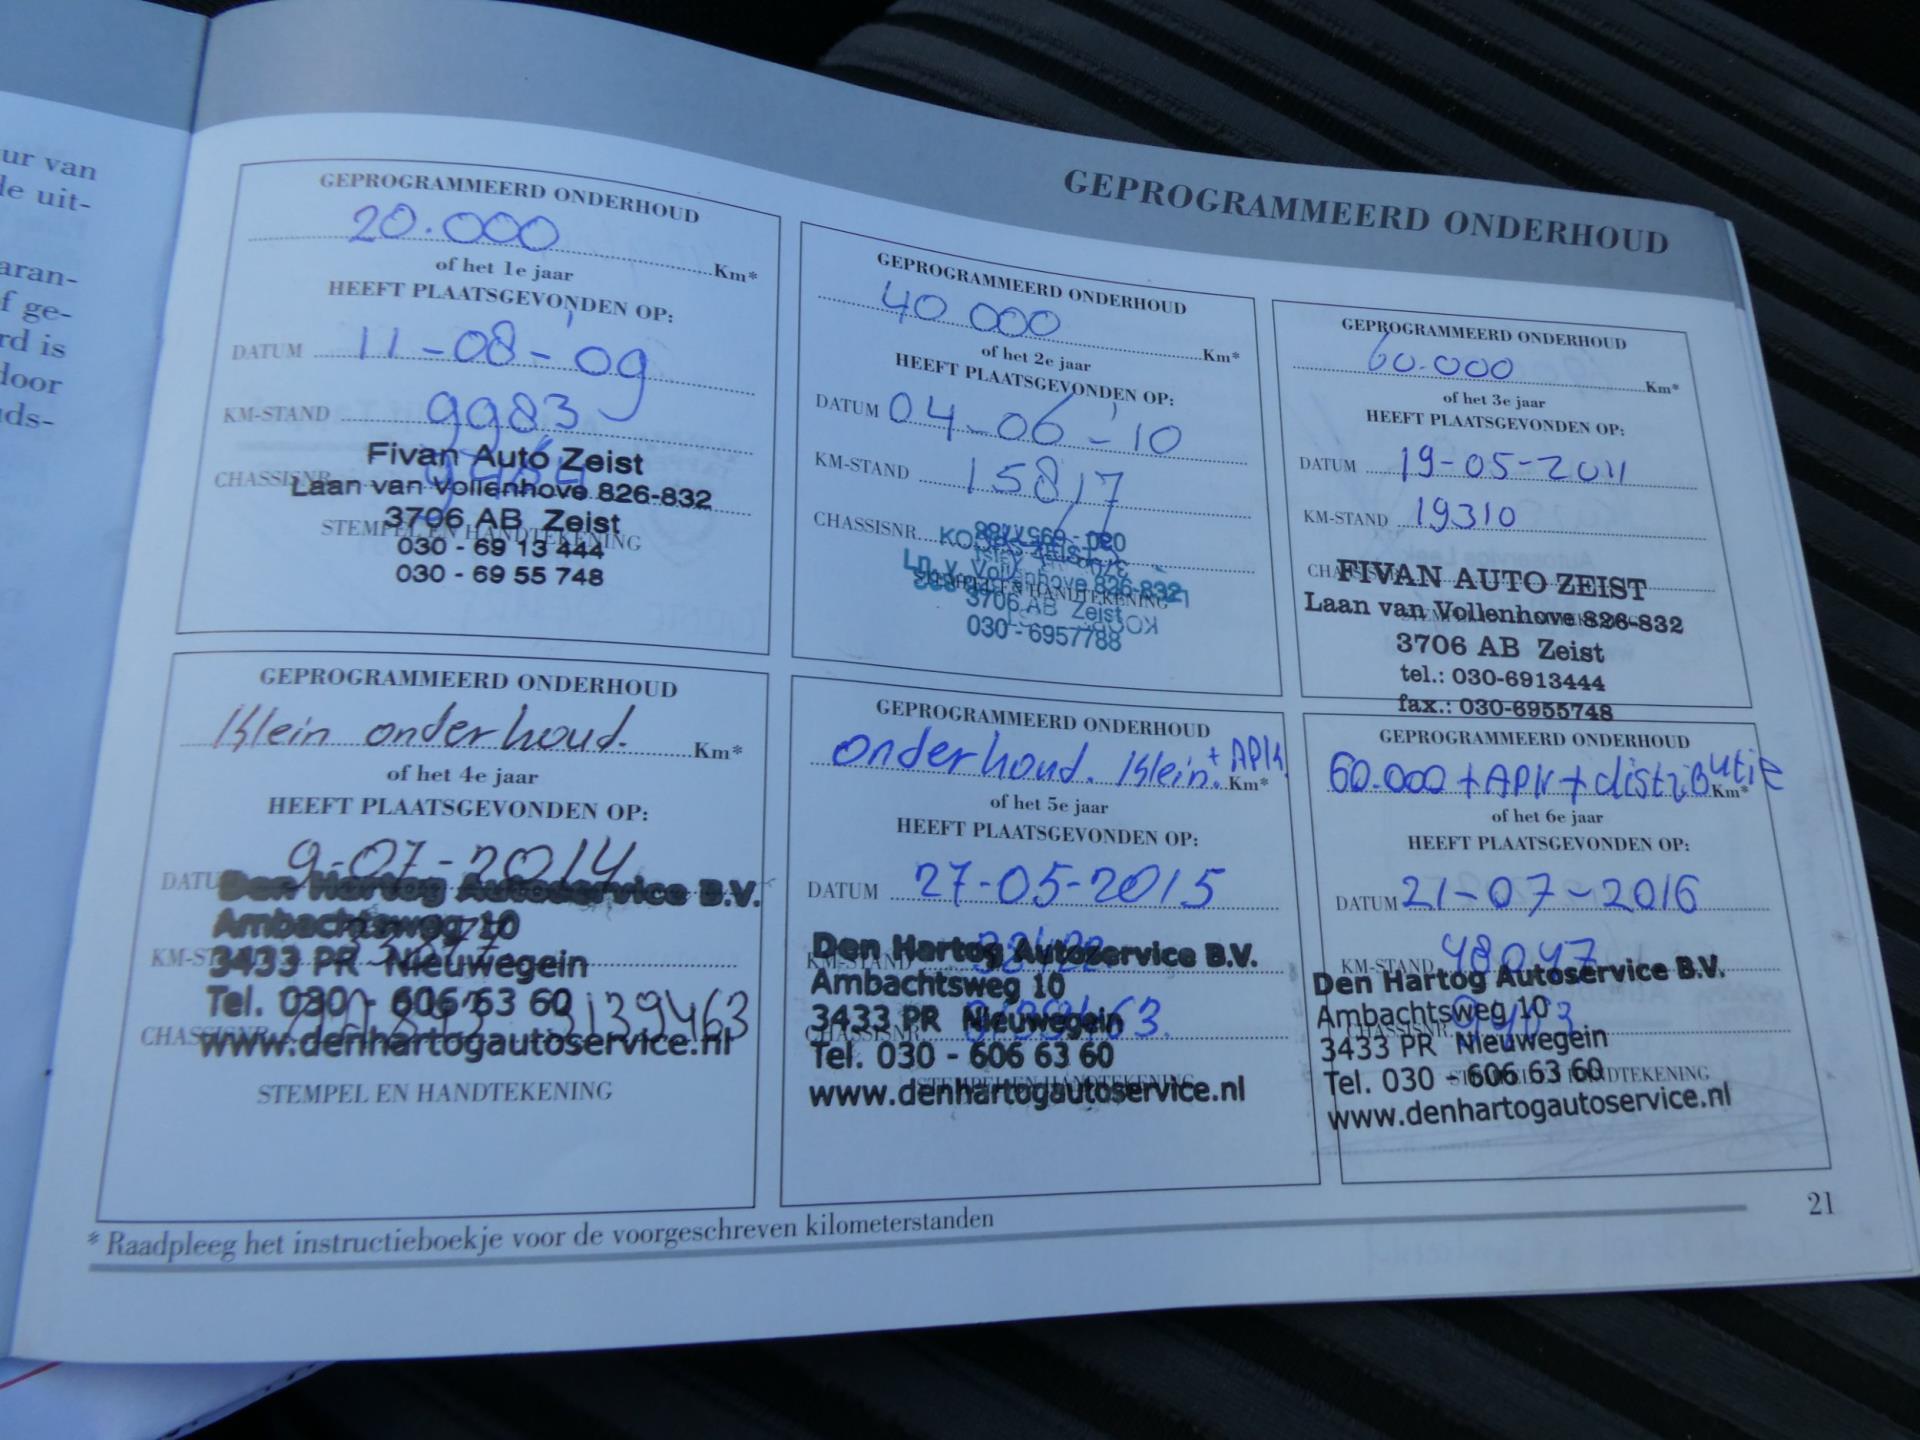 ur van
de uit-
aran-
f ge-
rd is
door
ds-
GEPROGRAMMEERD ONDERHOUD
GEPROGRAMMEERD ONDERHOUD
20.000 Km*
of het 1e jaar
HEEFT PLAATSGEVONDEN OP:
DATUM 11-08-'09
KM-STAND 9983
Fivan Auto Zeist
CHASSISNR.
Laan van Vollenhove 826-832
3706 AB Zeist
STEMPEL EN HANDTEKENING
030 - 69 13 444
030 - 69 55 748
GEPROGRAMMEERD ONDERHOUD
40 000 Km*
of het 2e jaar
HEEFT PLAATSGEVONDEN OP:
DATUM 04-06-'10
KM-STAND 15817
CHASSISNR.
Ln. v. Vollenhove 826-832
STEMPEL EN HANDTEKENING
3706 AB Zeist
030 - 6957788
GEPROGRAMMEERD ONDERHOUD
60.000 Km*
of het 3e jaar
HEEFT PLAATSGEVONDEN OP:
DATUM 19-05-2011
KM-STAND 19310
FIVAN AUTO ZEIST
Laan van Vollenhove 826-832
3706 AB Zeist
tel.: 030-6913444
fax.: 030-6955748
GEPROGRAMMEERD ONDERHOUD
Klein onderhoud. Km*
of het 4e jaar
HEEFT PLAATSGEVONDEN OP:
DATUM 9-07-2014
Den Hartog Autoservice B.V.
Ambachtsweg 10
KM-STAND
3433 PR Nieuwegein
Tel. 030 - 606 63 60
CHASSISNR. 3139463
www.denhartogautoservice.nl
STEMPEL EN HANDTEKENING
GEPROGRAMMEERD ONDERHOUD
onderhoud. Klein. + APK. Km*
of het 5e jaar
HEEFT PLAATSGEVONDEN OP:
DATUM 27-05-2015
Den Hartog Autoservice B.V.
KM-STAND
Ambachtsweg 10
3433 PR Nieuwegein
CHASSISNR.
Tel. 030 - 606 63 60
STEMPEL EN HANDTEKENING
www.denhartogautoservice.nl
GEPROGRAMMEERD ONDERHOUD
60.000 + APK + distributie Km*
of het 6e jaar
HEEFT PLAATSGEVONDEN OP:
DATUM 21-07-2016
KM-STAND 48047
Den Hartog Autoservice B.V.
Ambachtsweg 10
CHASSISNR. 9463
3433 PR Nieuwegein
Tel. 030 - 606 63 60
STEMPEL EN HANDTEKENING
www.denhartogautoservice.nl
* Raadpleeg het instructieboekje voor de voorgeschreven kilometerstanden
21